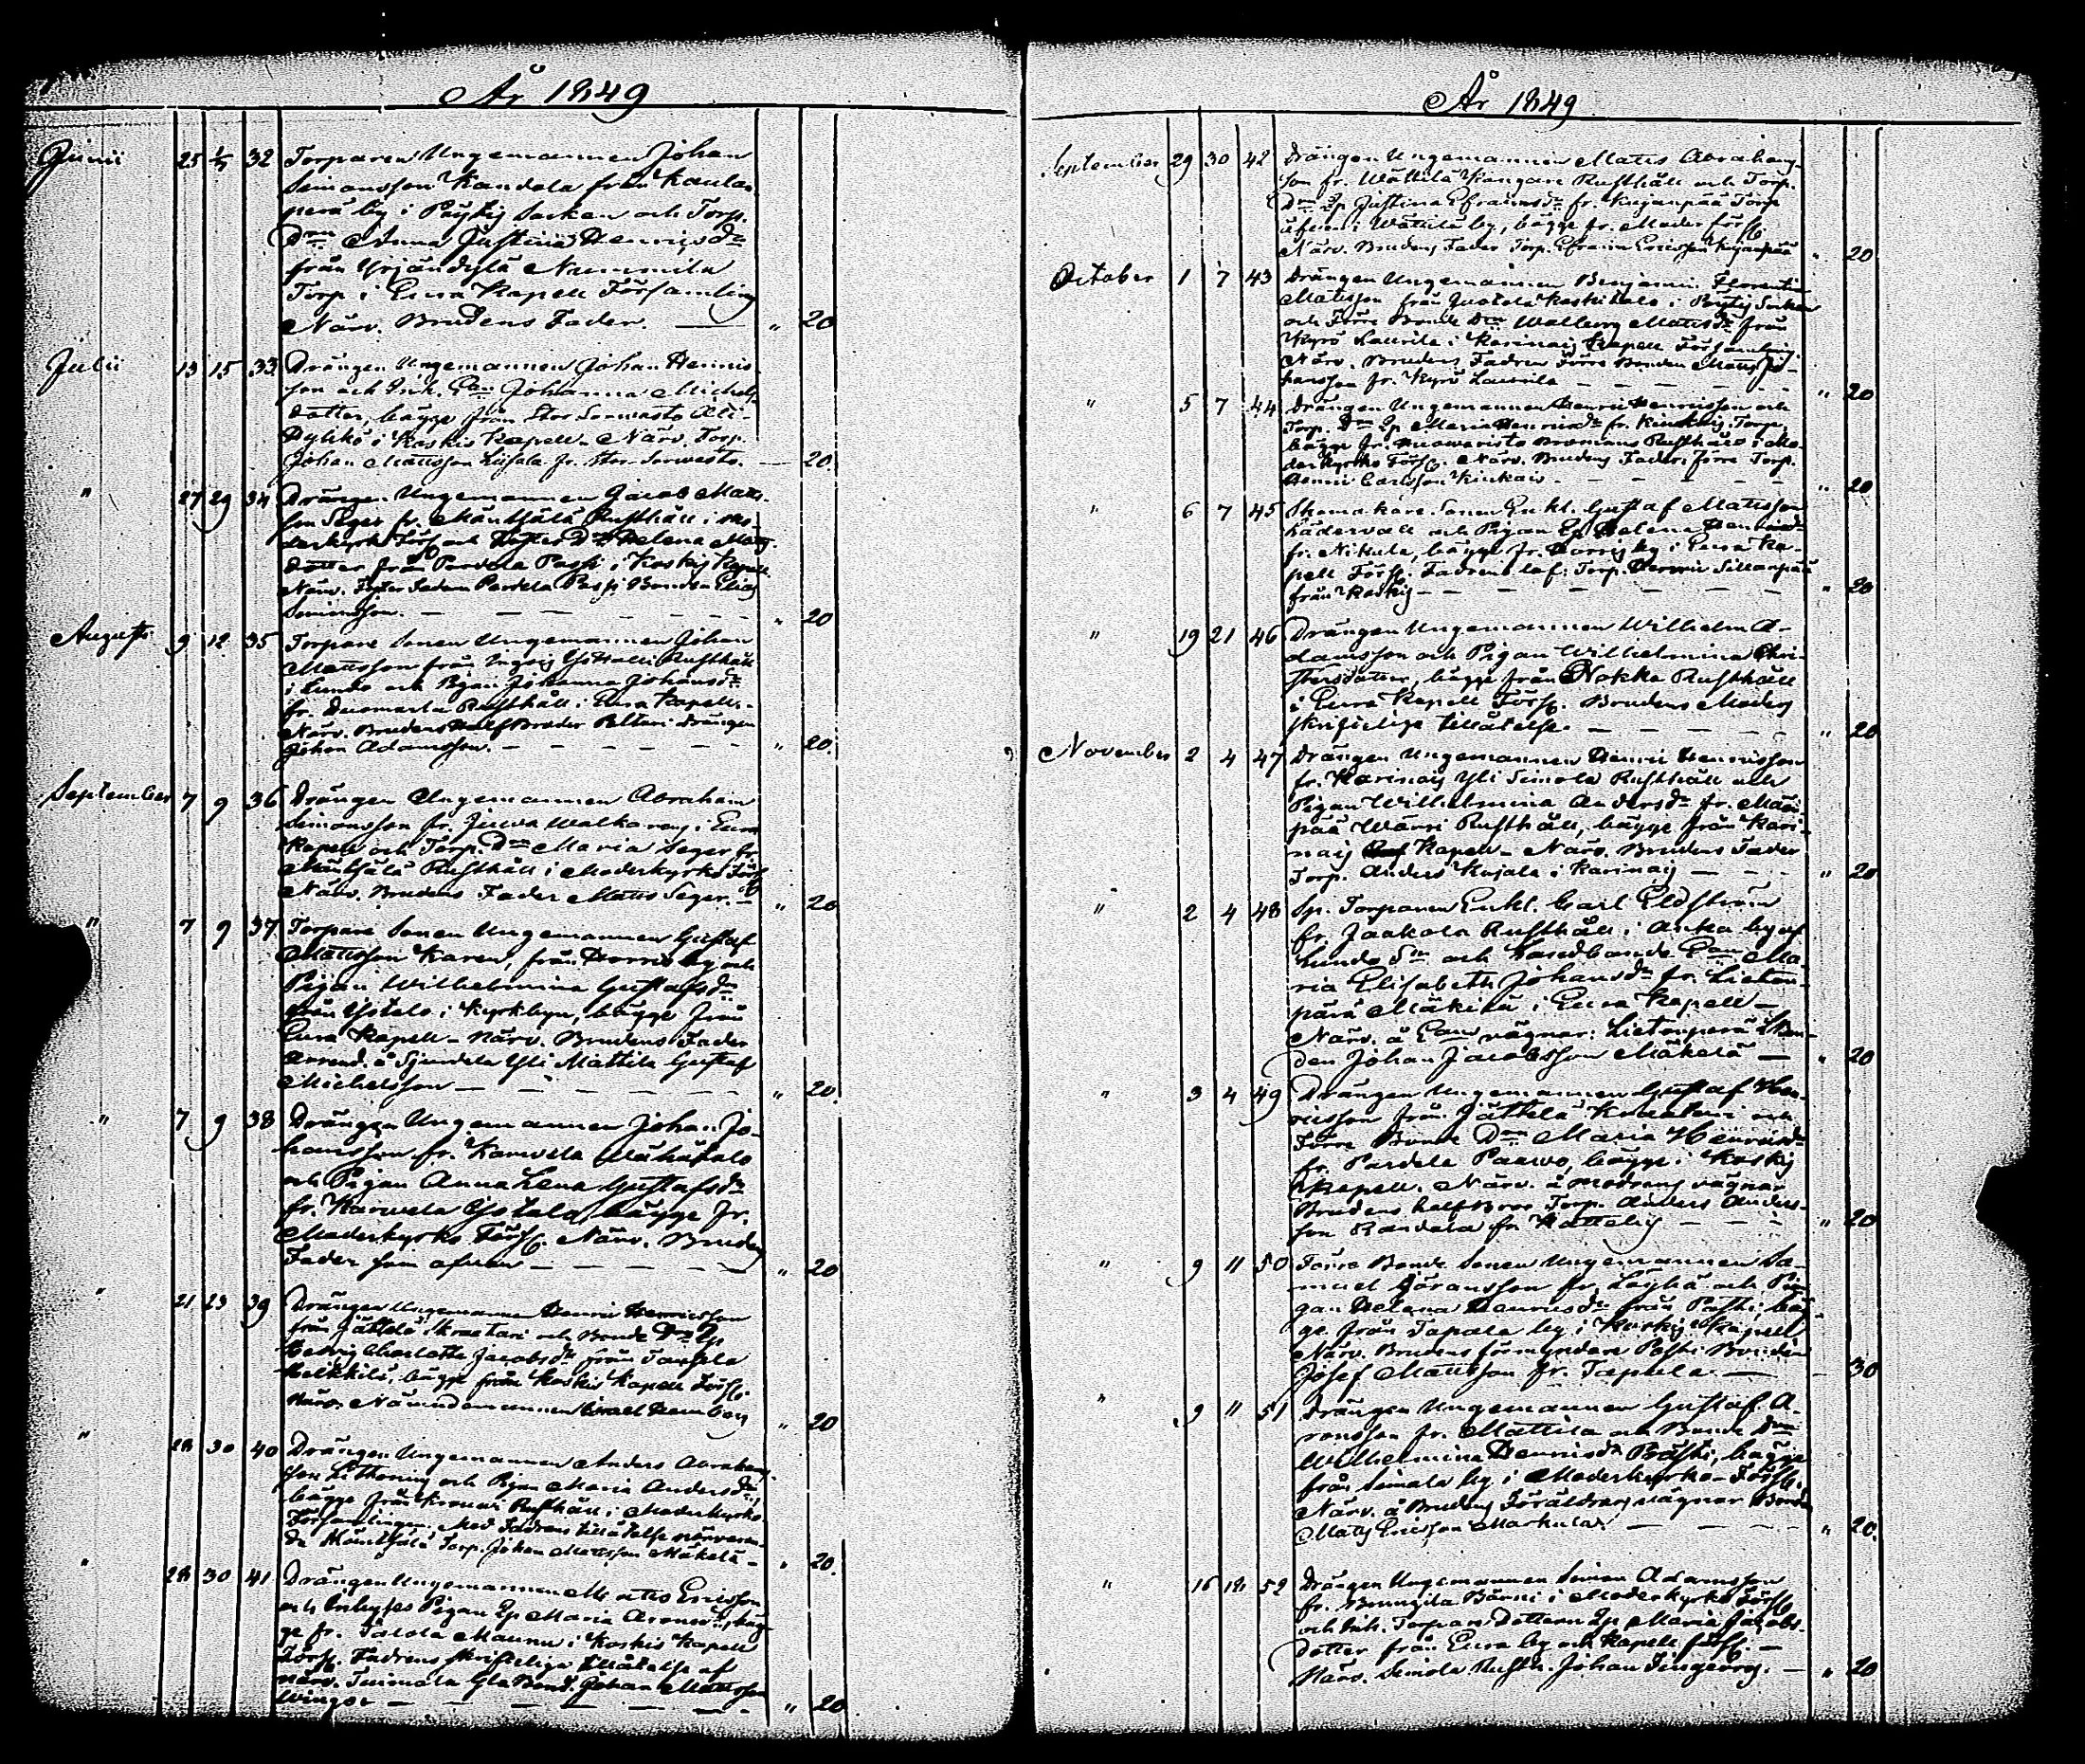 År 1849
Junii 25 1/7 32 Torparen Ungemannen Johan
Simonsson Kandola från Kaulan
perä by i Pöytis Socken och Torp.
Drn Anna Justina Henricsdr
från Yrjändylä Nummila
Torp i Eura Kapell Församling
Närv. Brudens Fader. — " 20
Julii 13 15 33 Drängen Ungemannen Johan Henrics-
son och Enk. Pan Johanna Michels
dotter, bägge från Stor Sorwasto Ali-
Pylkkö i Koskis Kapell. Närv. Torp.
Johan Mattsson fr. Stor Sorwasto. — 20
" 27 29 34 Drängen Ungemannen Jacob Matts-
son Seger fr. Mäntsälä Rusthåll i Mo-
derkyrko Förs. och Dr Helena Matts
dotter från Pardela Passi i Koskis Kapell
Närv. Pardela Passi Bonden Elias
Simonsson. — " 20
Augusti 9 12 35 Torpare Sonen Ungemannen Johan
Mattsson från Rusthåll
i Lundo och Pigan Johanna Johansdr
fr. Duomarla Rusthåll i Eura Kapell.
Närv. Brudens Half Broder Drängen
Johan Adamsson. — " 20.
September 7 9 36 Drängen Ungemannen Abraham
Simonsson fr. Juwa i Eura
Kapell och Torp. Drn Maria Seger fr.
Mäntsälä Rusthåll i Moderkyrko Förs
Närv. Brudens Fader Matts Seger. — " 20
" 7 9 37 Torpare Sonen Ungemannen Gustaf
Mattsson Karen, från Horris by och
Pigan Wilhelmina Gustafsdr
från Ystalo i Kyrkbyn, bägge från
Eura Kapell. Närv. Brudens Fader
Arrend. å Sjundela Yli Mattila Gustaf
Michelsson — " 20.
" 7 9 38 Drängen Ungemannen Johan Jo-
hansson fr. Karwela Mähätalo
och Pigan Anna Lena Gustafsdr
fr. Karwela Ystalo, bägge fr.
Moderkyrko Förs. Närv. Brudens
Fader som ofvan — " 20
" 21 23 39 Drängen Ungemannen Henric Henricsson
från Jättelä Kraatari och Bonde Drn Ep
Hedvig Charlotta Jacobsdr från
Heikkilä, bägge från Koskis Kapell Förs.
Närv. Nämndemannen Israel " 20
" 28 30 40 Drängen Ungemannen Anders Abrahams-
son och Pigan Maria Andersdr,
bägge från Rusthåll i Moderkyrko
Församlingen. Med Fadrens tillåtelse närvaran-
de Mäntsälä Torp. Johan Mattsson Mäkelä — " 20.
" 28 30 41 Drängen Ungemannen Matts Ericsson
och Inhyses Pigan Ep Maria Aronsdr, bäg-
ge fr. Talola Maunu i Koskis Kapell
Förs. Fadrens skriftliga tillåtelse af
närv. Tuimala Bond. Johan Mattsson
— " 20
År 1849
September 29 30 42 Drängen Ungemannen Matts Abrahams-
son fr. Wättilä Kangare Rusthåll och Torp.
Drn Ep Justina Efraimsdr fr. Kujanpää Torp
i Wättilä by, bägge fr. Moder förs.
Närv. Brudens Fader Torp. Efraim Ericsson Kujanpää " 20
October 1 7 43 Drängen Ungemannen Benjamin Florentin
Mattsson från Koskitalo i Pöytis Socken
och Förre Bonde Drn Walborg Mattsdr från
Kyrö Laurila i Karinais Kapell Församling.
Närv. Brudens Fadren Förre Bonden Matts Jo-
hansson fr. Kyrö Laurila — " 20
" 5 7 44 Drängen Ungemannen Henric Henricsson och
Torp. Drn Ep Maria Henricsdr fr. Kiukais Torp,
bägge fr. Rusthåll i Mo-
derkyrko Förs. Närv. Brudens Fader, förre Torp.
Henric Carlsson Kiukais — " 20
" 6 7 45 Skomakare Sonen Enkl. Gustaf Mattsson
Lädervall och Pigan Ep Helena Henricsdr
fr. Nikula, bägge fr. Horris by i Eura Ka-
pell Förs. Fadrens lof: Torp. Henric Sillanpää
från Koskis — " 20
" 19 21 46 Drängen Ungemannen Wilhelm A-
damsson och Pigan Wilhelmina Chri-
stersdotter, bägge från Nokka Rusthåll
i Eura Kapell Förs. Brudens Moders
skriftliga tillåtelse. — " 20
November 2 4 47 Drängen Ungemannen Henric Henricsson
fr. Karinais Yli Simola Rusthåll och
Pigan Wilhelmina Andersdr fr. Mäen
pää Wärri Rusthåll, bägge från Kari-
nais Kapell. Närv. Brudens Fader
Torp. Anders Kujala i Karinais — " 20
" 2 4 48 Sp. Torparen Enkl. Carl Eldström
fr. Jaakola Rusthåll i Anka by af
Lundo Sn och Landbonde Pan Ma-
ria Elisabeth Johansdr fr. Lieton-
perä Mäkilä i Eura Kapell —
Närv. å Pans vägnar: Lietonperä Bon-
den Johan Jacobsson Mäkelä — " 20
" 3 4 49 Drängen Ungemannen Gustaf Hen-
ricsson från Jättelä Kraatari och
Förre Bonde Drn Maria Henricsdr
fr. Pardela Paawo, bägge i Koskis
Kapell. Närv. å modrens vägnar
Brudens half Bror Torp. Anders Anders-
son Randala fr. Kattelis — " 20
" 9 11 50 Förre Bonde Sonen Ungemannen Sa-
muel Göransson fr. Löyhä och Pi-
gan Helena Henricsdr från Påhls; bäg-
ge från Tapala by i Koskis Kapell
Närv. Brudens förmyndare Bonden
Josef Mattsson fr. Tapala. — 30
" 9 11 51 Drängen Ungemannen Gustaf A-
ronsson fr. Mattila och Bonde Drn
Wilhelmina Henricsdr, bägge
från Simala by i Moderkyrko Förs.
Närv. å Brudens Föräldrars vägnar Bonden
Matts Ericsson Markula — " 20.
" 16 18 52 Drängen Ungemannen Simon Adamsson
fr. i Moderkyrko Förs.
och Enk. Torpare Dottern Ep Maria Jacobs-
dotter från Eura by och Kapell förs. —
Närv. Simola Rusth. Johan — " 20